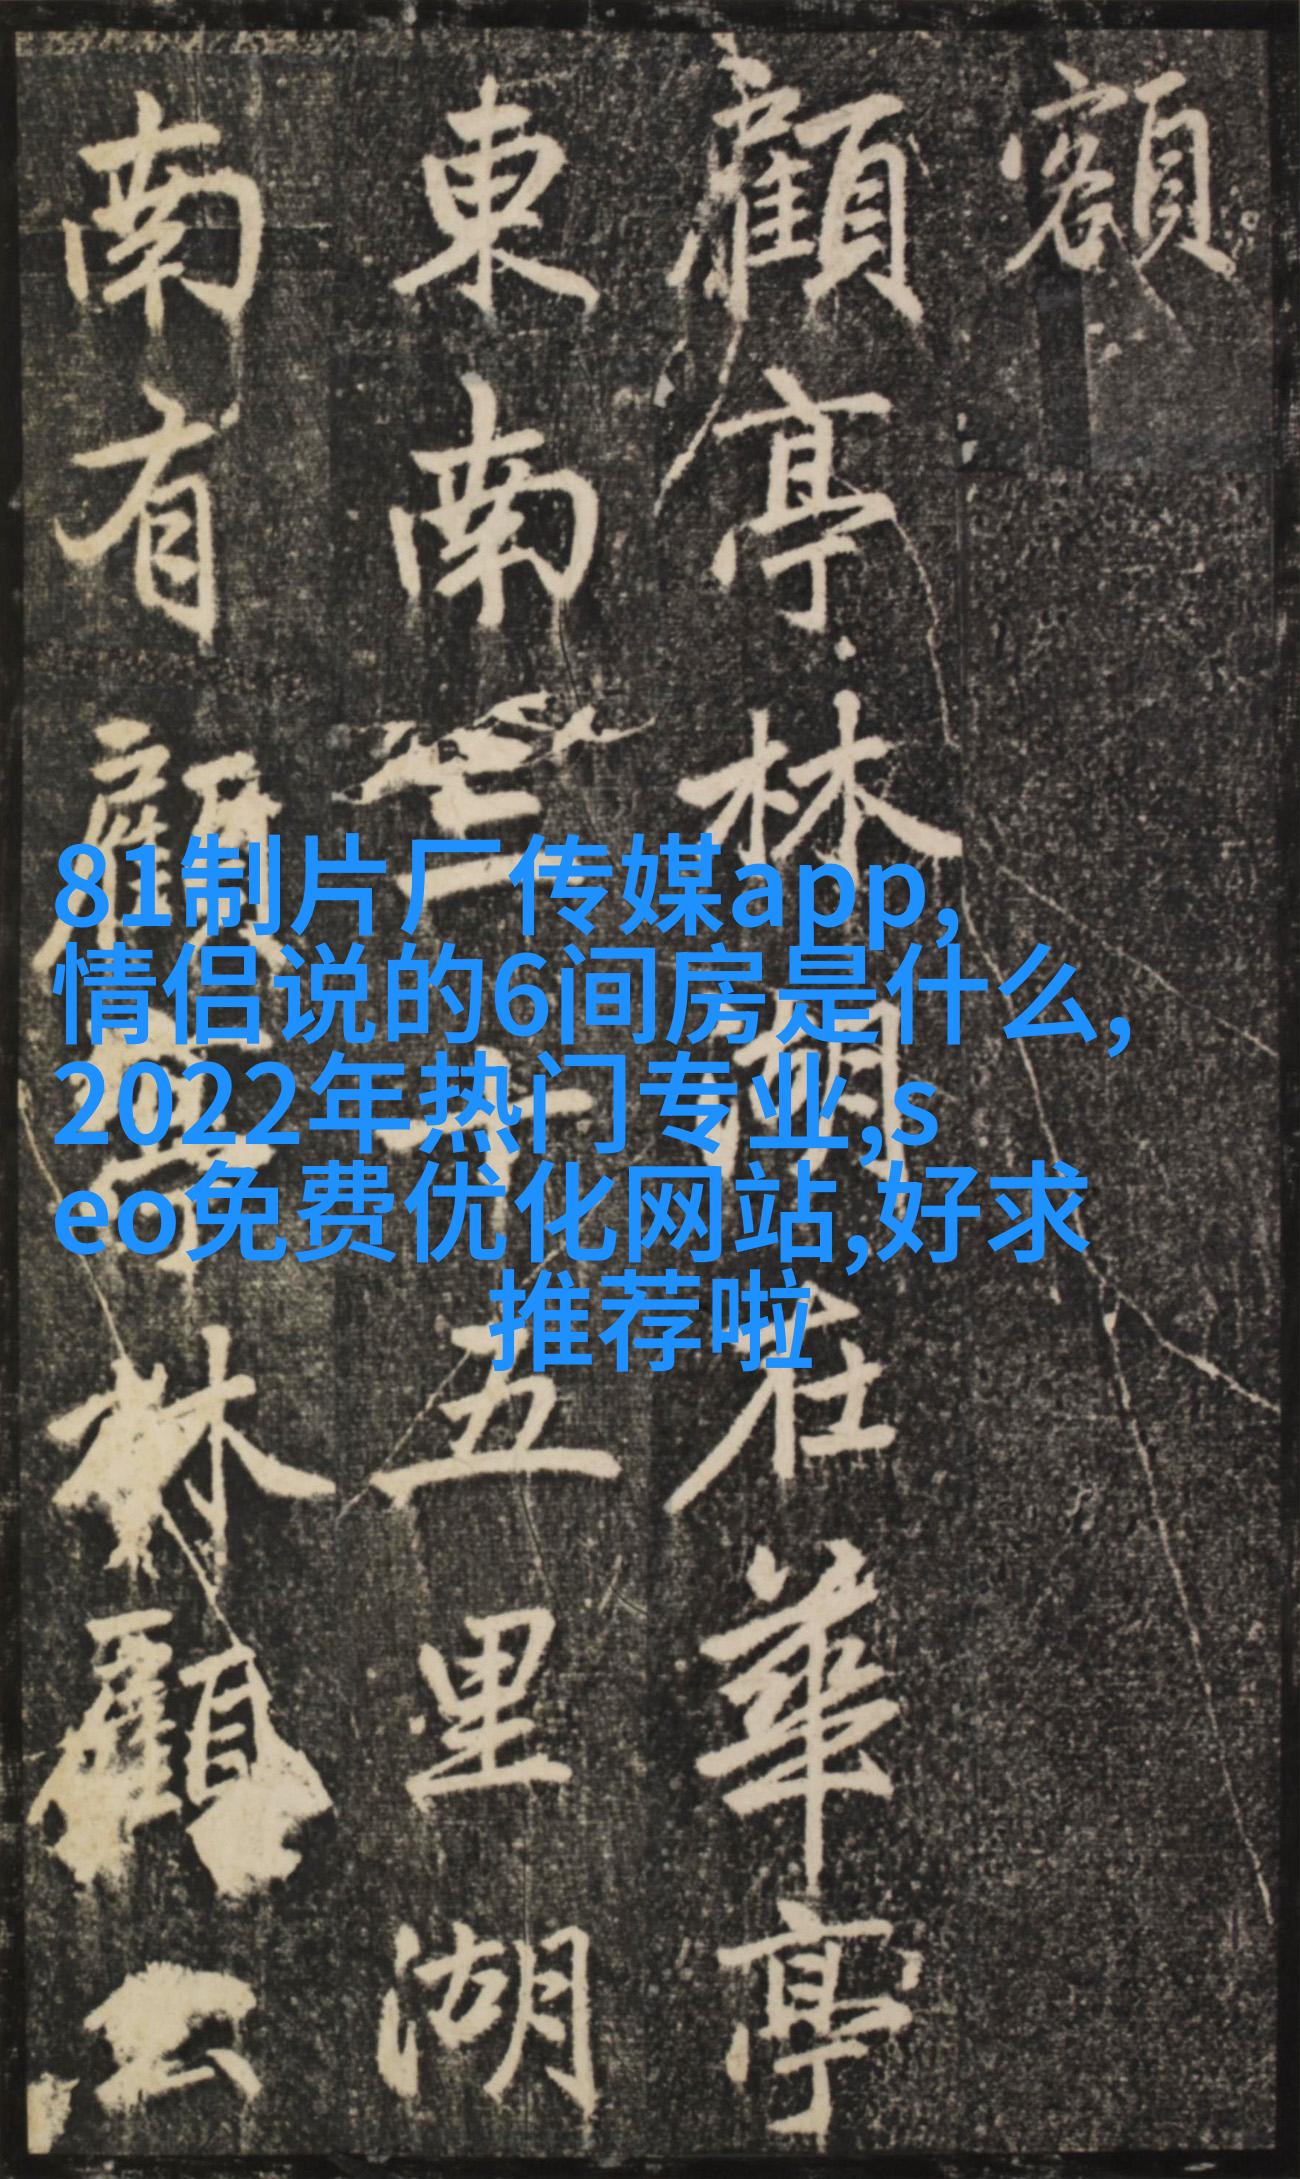 額
顧亭林湖在華亭
東南三十五里湖
南有顧亭林顧公
81制片厂传媒app,
情侣说的6间房是什么,
2022年热门专业,s
eo免费优化网站,好求
推荐啦